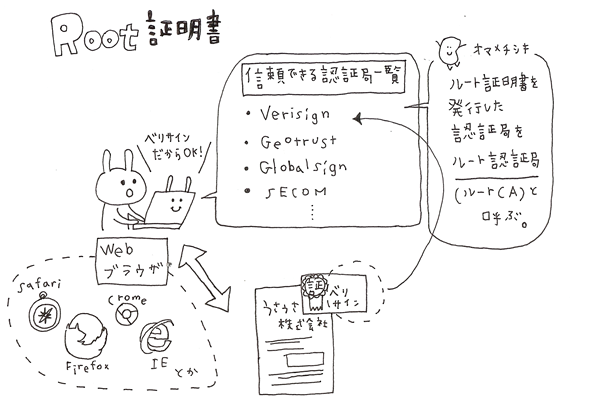 Root 証明書
信頼できる認証局一覧
・Verisign
・Geotrust
・Globalsign
・SECOM
オマメチシキ
ルート証明書を
発行した
認証局を
ルート認証局
(ルートCA)と
呼ぶ。
ベリサイン
だからOK!
Web
ブラウザ
Safari
Crome
Firefox
IE
とか
証
ベリ
サイン
うさうさ
株式会社